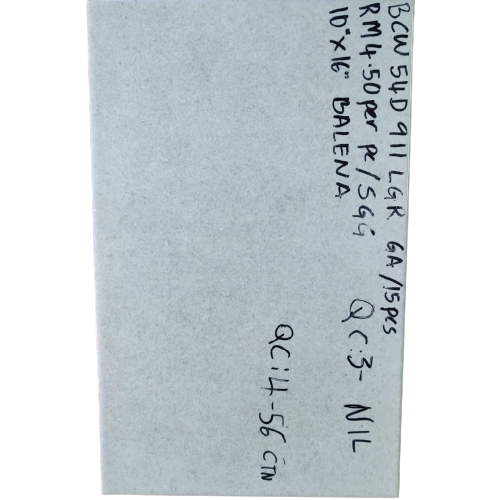 BCW 54D 911 LGR GA/15pcs
RM4.50 per pc/SGG
10"x16" BALENA
QC:3- NIL
QC:4-56 CTN